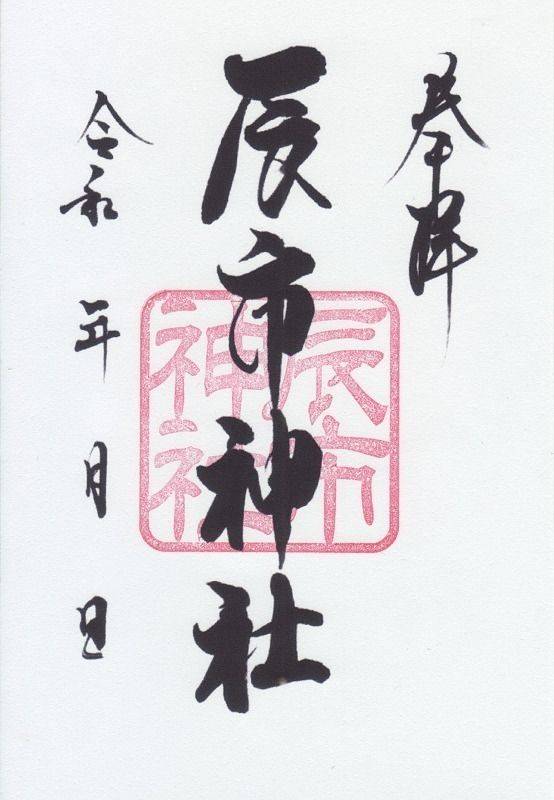 奉拝
辰市神社
辰市
神社
令和 年 月 日